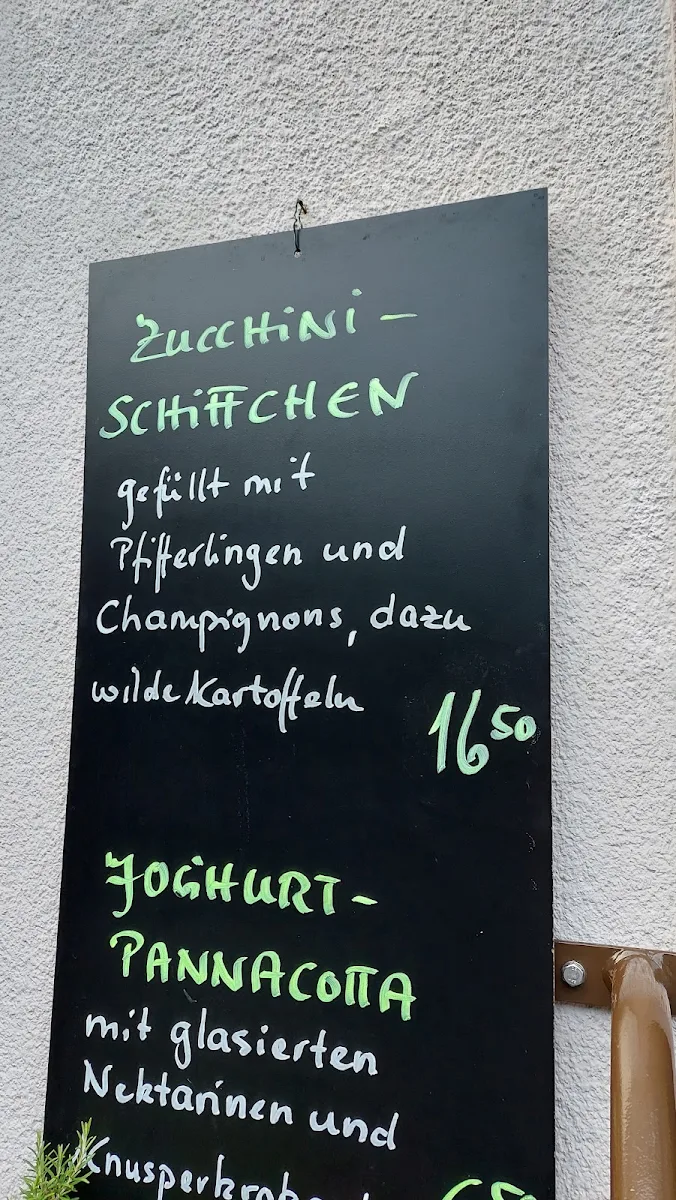 ZUCCHiNi-
SCHiFFCHEN
gefüllt mit
Pfifferlingen und
Champignons, dazu
wilde Kartoffeln
16 50
JOGHURT-
PANNACOTTA
mit glasierten
Nektarinen und